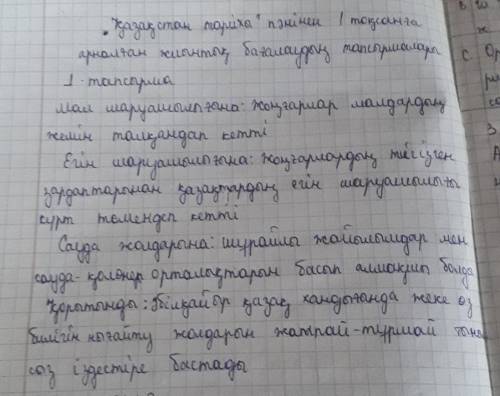 "Қазақстан тарихы" пәнінен 1 тоқсанға
арналған жиынтық бағалаудың тапсырмалары
1-тапсырма
Мал шаруашылығына: жоңғарлар малдардың
көлемін талқандап кетті
Егін шаруашылығына: жоңғарлардың тигізген
зардаптарынан қазақтардың егін шаруашылығы
күрт төмендеп кетті
Сауда жолдарына: шұрайлы жайылымдар мен
сауда-қолөнер орталықтарын басып алмақшы болды
Қорытынды: Әбілқайыр қазақ хандығында жеке өз
билігін нығайту жолдарын жатпай-тұрмай
сөз іздестіре бастады
В
С.
Ор
3
А